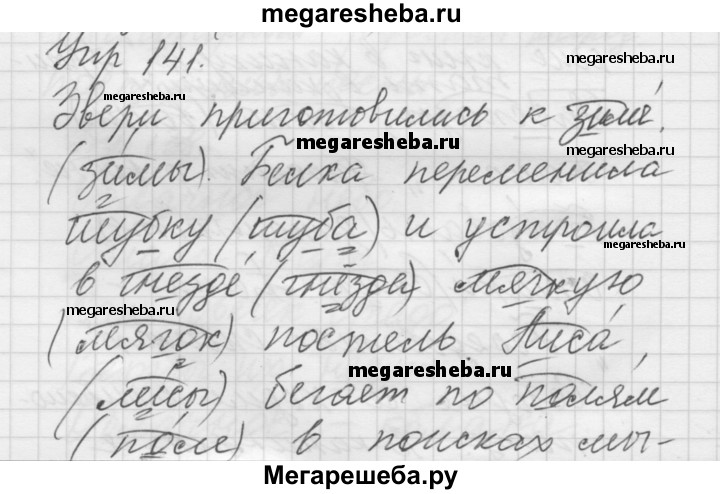 megaresheba.ru
Упр 141.
megaresheba.ru
megaresheba.ru
Звери приготовились к зиме́
megaresheba.ru
megaresheba.ru
(зи́мы). Белка переменила
шубку (шуба) и устроила
megaresheba.ru
в гнезде́ (гнёзда) мягкую
megaresheba.ru
(мягок) постель Лиса́
megaresheba.ru
(ли́сы) бегает по полям
(по́ле) в поисках мы-
Мегарешеба.ру